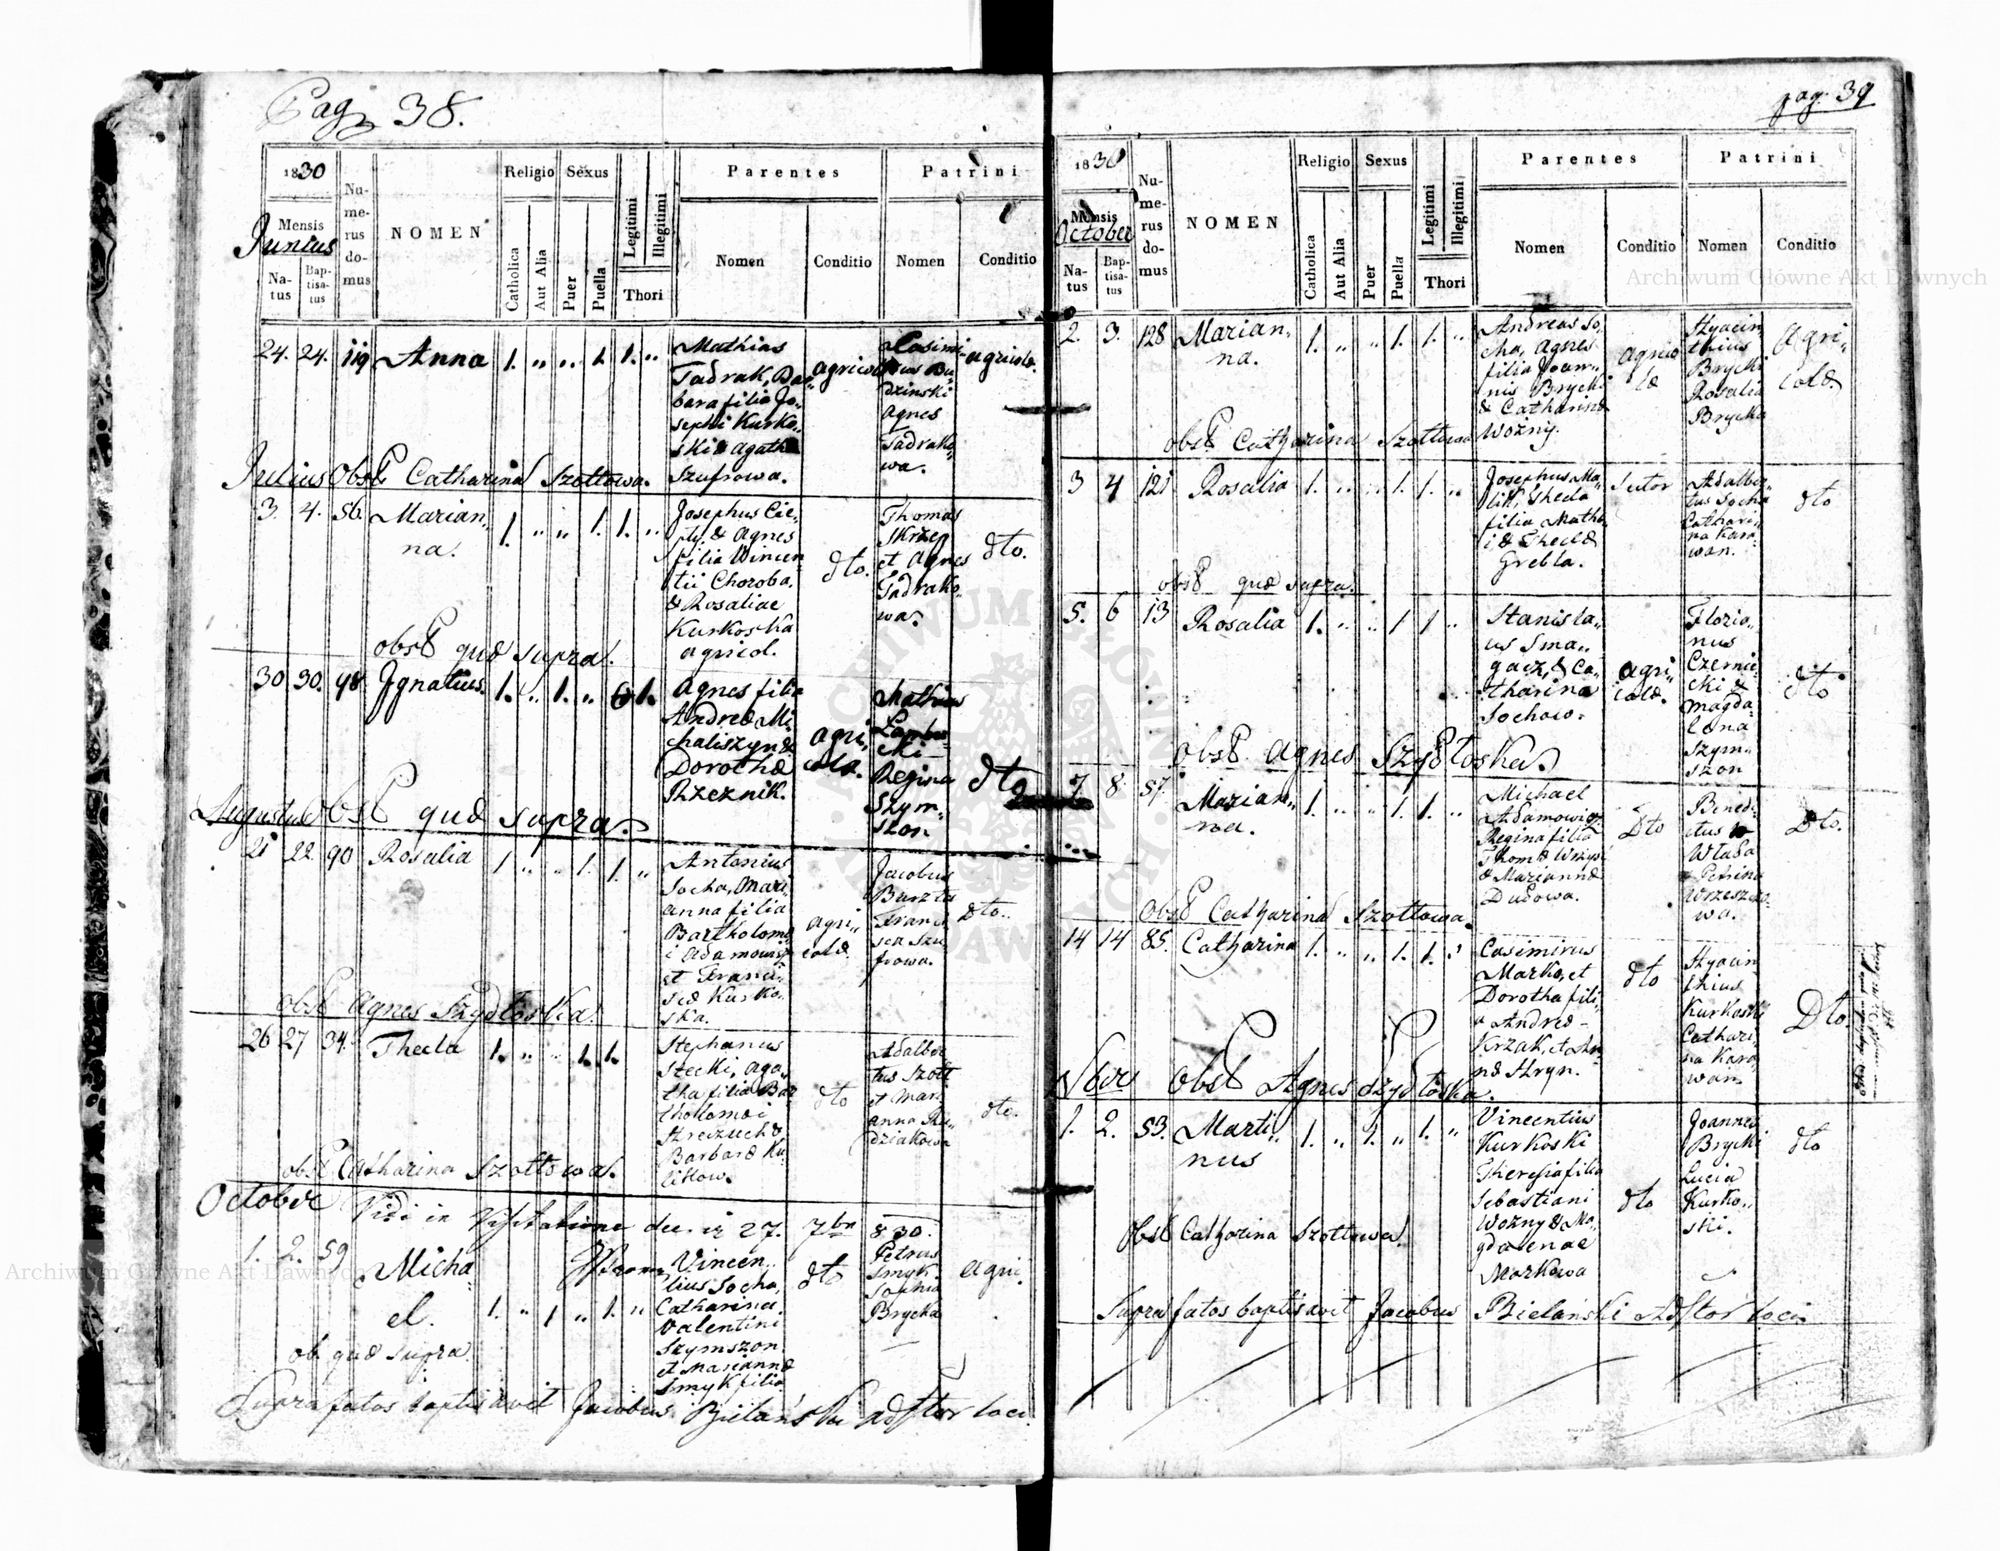 Pag 38.
1830
Mensis
Junius
Natus
Baptisatus
Numerus domus
NOMEN
Religio
Catholica
Aut Alia
Sexus
Puer
Puella
Legitimi
Illegitimi
Thori
Parentes
Nomen
Conditio
Patrini
Nomen
Conditio
24. 24. 119 Anna 1. „ „ 1. 1. „
Mathias
Tadrak, Bar„
bara filia Jo„
sephi Kurko„
ski & Agatha
Szufrowa.
agricola
Casimi„
rus Bu„
dzinski
Agnes
Tadrako„
wa.
agricola.
Obst Catharina Szottowa.
Julius
3. 4. 56. Marian„
na. 1. „ „ 1. 1. „
Josephus Cie„
pły & Agnes
filia Wincen
tii Choroba.
& Rosaliae
Kurkoska
agricol.
dto.
Thomas
Skrzep
et Agnes
Tadrako„
wa.
dto.
obst quæ supra.
30 30. 98 Ignatius. 1. „ 1. „ 1.
Agnes filia
Andreæ Mi„
chaliszyn &
Dorothæ
Rzeznik.
agri„
cola.
Mathias
Regina
Szym„
szon
dto
obst quæ supra.
Augustus
21 22. 90 Rosalia 1 „ „ 1. 1. „
Antonius
Socha, Mari
anna filia
Bartholomæ
i Adamowicz
et Franci„
scæ Kurko„
ska.
agri„
colæ.
Jacobus
Burzta
Franci
sca Szu
frowa.
dto.
obst Agnes Szydłoska.
26 27 34. Thecla 1. „ „ 1. 1.
Stephanus
Stecki, Aga„
tha filia Bar
tholomæi
Barbaræ Ku„
likow.
dto
Adalber
tus Szott
et Mari
anna Ru„
dziakowa
dto.
obst Catharina Szottowa.
October
Vidi in Visitatione die 27. 7bris 830.
1. 2. 59 Micha„
el. 1. „ 1 „ 1. „
Vincen„
tius Socha,
Catharina
Valentini
Szymszon
et Mariannæ
Smyk filia.
dto
Petrus
Smyk.
Sophia
Brycka
agri.
ob. quæ supra.
Suprafatos baptisavit Jacobus Bielański Adstor loci.
pag. 39
1830
Mensis
October
Natus
Baptisatus
Numerus domus
NOMEN
Religio
Catholica
Aut Alia
Sexus
Puer
Puella
Legitimi
Illegitimi
Thori
Parentes
Nomen
Conditio
Patrini
Nomen
Conditio
2. 3. 128 Marian„
na. 1. „ „ 1. 1. „
Andreas So„
cha, Agnes
filia Joan„
nis Brycki
& Catharinæ
Wozny.
agrico
læ
Hyacin
thius
Brycki
Rosalia
Brycka
agri„
colæ.
obst Catharina Szottowa
3 4 121 Rosalia 1. „ „ 1. 1. „
Josephus Ma„
lik, Thecla
filia Mathæ
i & Theclæ
Grebla.
Sutor
Adalber„
tus Socha
Cathari„
na Kara„
wan.
dto
obst quæ supra.
5. 6 13 Rosalia 1. „ „ 1 1 „
Stanisla„
us Sma„
gacz, & Ca„
tharina
Sochow.
agri„
colæ.
Floria„
nus
Czernic„
cki &
Magda„
lena
Szym„
szon
dto
obst. Agnes Szydłoska.
7 8. 57. Marian„
na. 1. „ „ 1. 1. „
Michael
Adamowicz
Regina filia
& Mariannæ
Dudowa.
Dto
Bened„
ictus
Petrina
Wrzeszczo„
wa.
Dto.
Obst Catharina Szottowa.
14 14 85. Catharina 1. „ „ 1. 1. „
Casimirus
Marko, et
Dorotha fili„
a Andreæ
Krzak, et An„
næ Hryn.
dto
Hyacin
thius
Kurkoski
Cathari„
na Kara„
wan
Dto.
Obst Agnes Szydłoska.
9bre
1. 2. 53. Marti„
nus 1. „ 1. „ 1. „
Vincentius
Kurkoski
Theresia filia
Sebastiani
Wozny & Ma„
gdalenae
Markowa
dto
Joannes
Brycki
Lucia
Kurko„
ski.
dto
Obst Catharina Szottowa.
Suprafatos baptisavit Jacobus Bielański Adstor loci.
Archiwum Główne Akt Dawnych
Archiwum Główne Akt Dawnych
ARCHIWUM GŁÓWNE AKT DAWNYCH